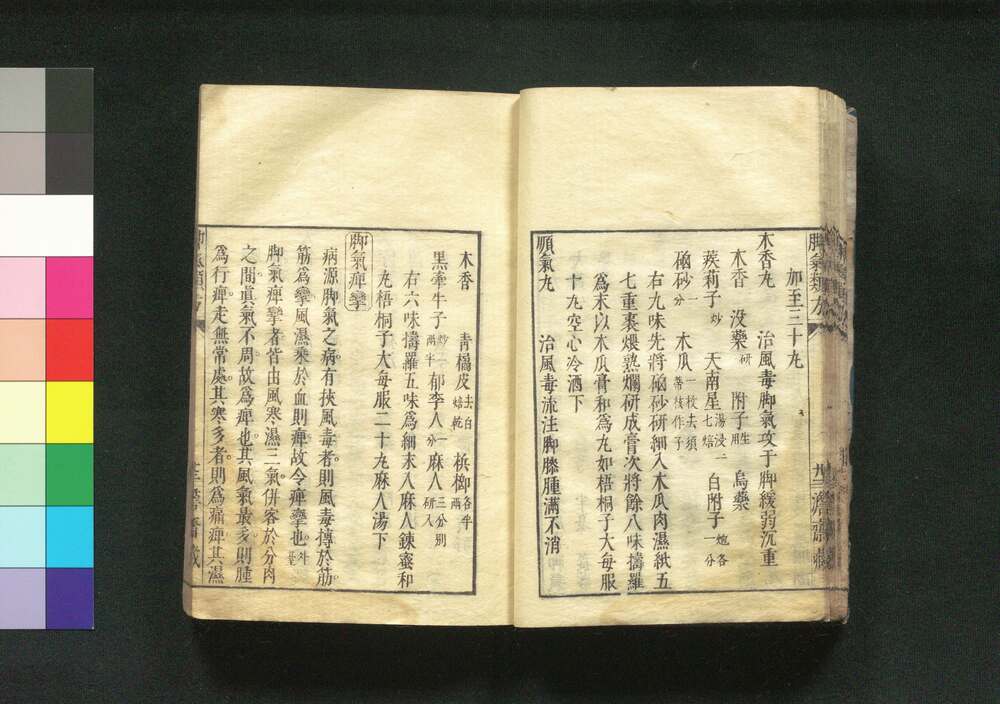 脚氣類方
加至三十丸
木香丸 治風毒脚氣攻于脚緩弱沉重
木香 沒藥研 附子生用 烏藥
蒺莉子炒 天南星湯浸二七焙 白附子炮各一分
硇砂一分 木瓜一枚去須
右九味先將硇砂研細入木瓜肉濕紙五
七重裹煨熟爛研成膏次將餘八味擣羅
爲末以木瓜膏和爲丸如梧桐子大每服
十丸空心冷酒下
順氣丸 治風毒流注脚膝腫滿不消
木香 青橘皮去白焙乾 檳榔各半兩
黒牽牛子炒一兩半 郁李人一分 麻人三分別研入
右六味擣羅五味爲細末入麻人錬蜜和
丸梧桐子大每服二十丸麻人湯下
脚氣痺攣
病源脚氣之病有挾風毒者則風毒摶於筋
筋爲攣風濕乘於血則痺故令痺攣也外臺
脚氣痺攣者皆由風寒濕三氣併客於分肉
之間眞氣不周故爲痺也其風氣最多則腫
爲行痺走無常處其寒多者則爲痛痺其濕